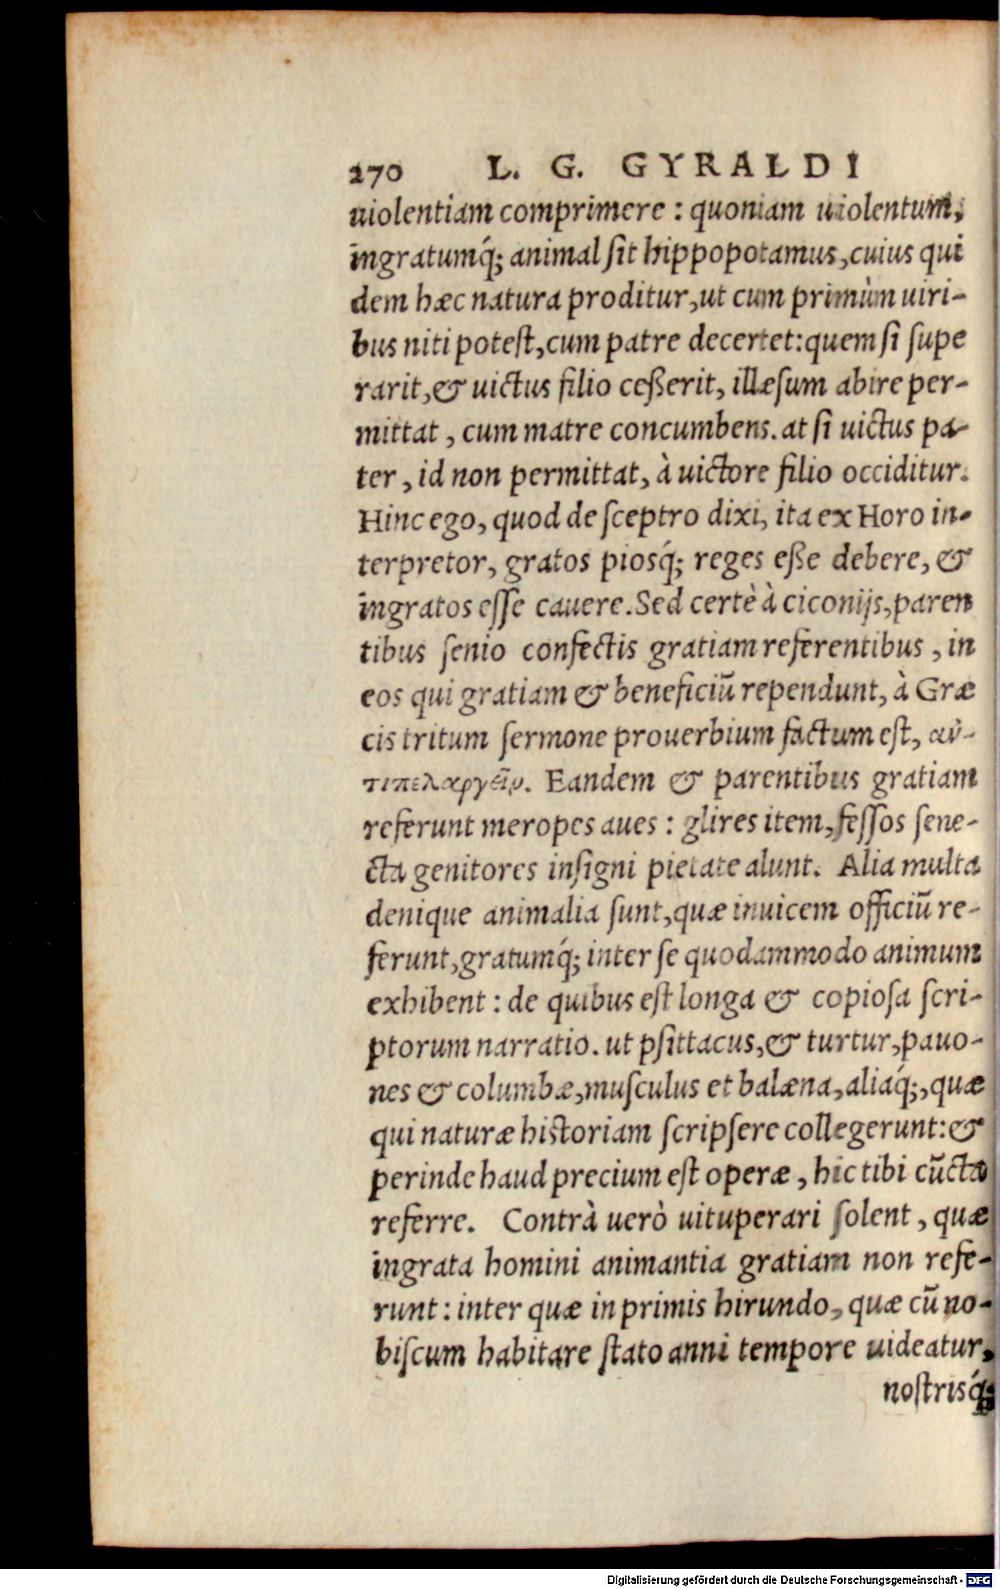 270 L. G. GYRALDI
uiolentiam comprimere : quoniam uiolentum,
ingratumq́; animal ſit hippopotamus,cuius qui
dem hæc natura proditur,ut cum primùm uiri-
bus niti poteſt,cum patre decertet:quem ſi ſupe
rarit,& uictus filio ceßerit, illæſum abire per-
mittat , cum matre concumbens. at ſi uictus pa-
ter , id non permittat, à uictore filio occiditur.
Hinc ego, quod de ſceptro dixi, ita ex Horo in-
terpretor, gratos piosq́; reges eße debere, &
ingratos eſſe cauere. Sed certè à ciconijs,paren
tibus ſenio confectis gratiam referentibus , in
eos qui gratiam & beneficiũ rependunt, à Græ
cis tritum ſermone prouerbium factum eſt, ἀν-
τιπελαργεῖν. Eandem & parentibus gratiam
referunt meropes aues : glires item,feſſos ſene-
cta genitores inſigni pietate alunt. Alia multa
denique animalia ſunt,quæ inuicem officiũ re-
ferunt,gratumq́; inter ſe quodammodo animum
exhibent : de quibus eſt longa & copioſa ſcri-
ptorum narratio. ut pſittacus,& turtur,pauo-
nes & columbæ,muſculus et balæna,aliaq́;,quæ
qui naturæ hiſtoriam ſcripſere collegerunt:&
perinde haud precium eſt operæ , hic tibi cũcta
referre. Contrà uerò uituperari ſolent , quæ
ingrata homini animantia gratiam non refe-
runt : inter quæ in primis hirundo, quæ cũ no-
biſcum habitare ſtato anni tempore uideatur,
noſtrisq́;
Digitalisierung gefördert durch die Deutsche Forschungsgemeinschaft - DFG